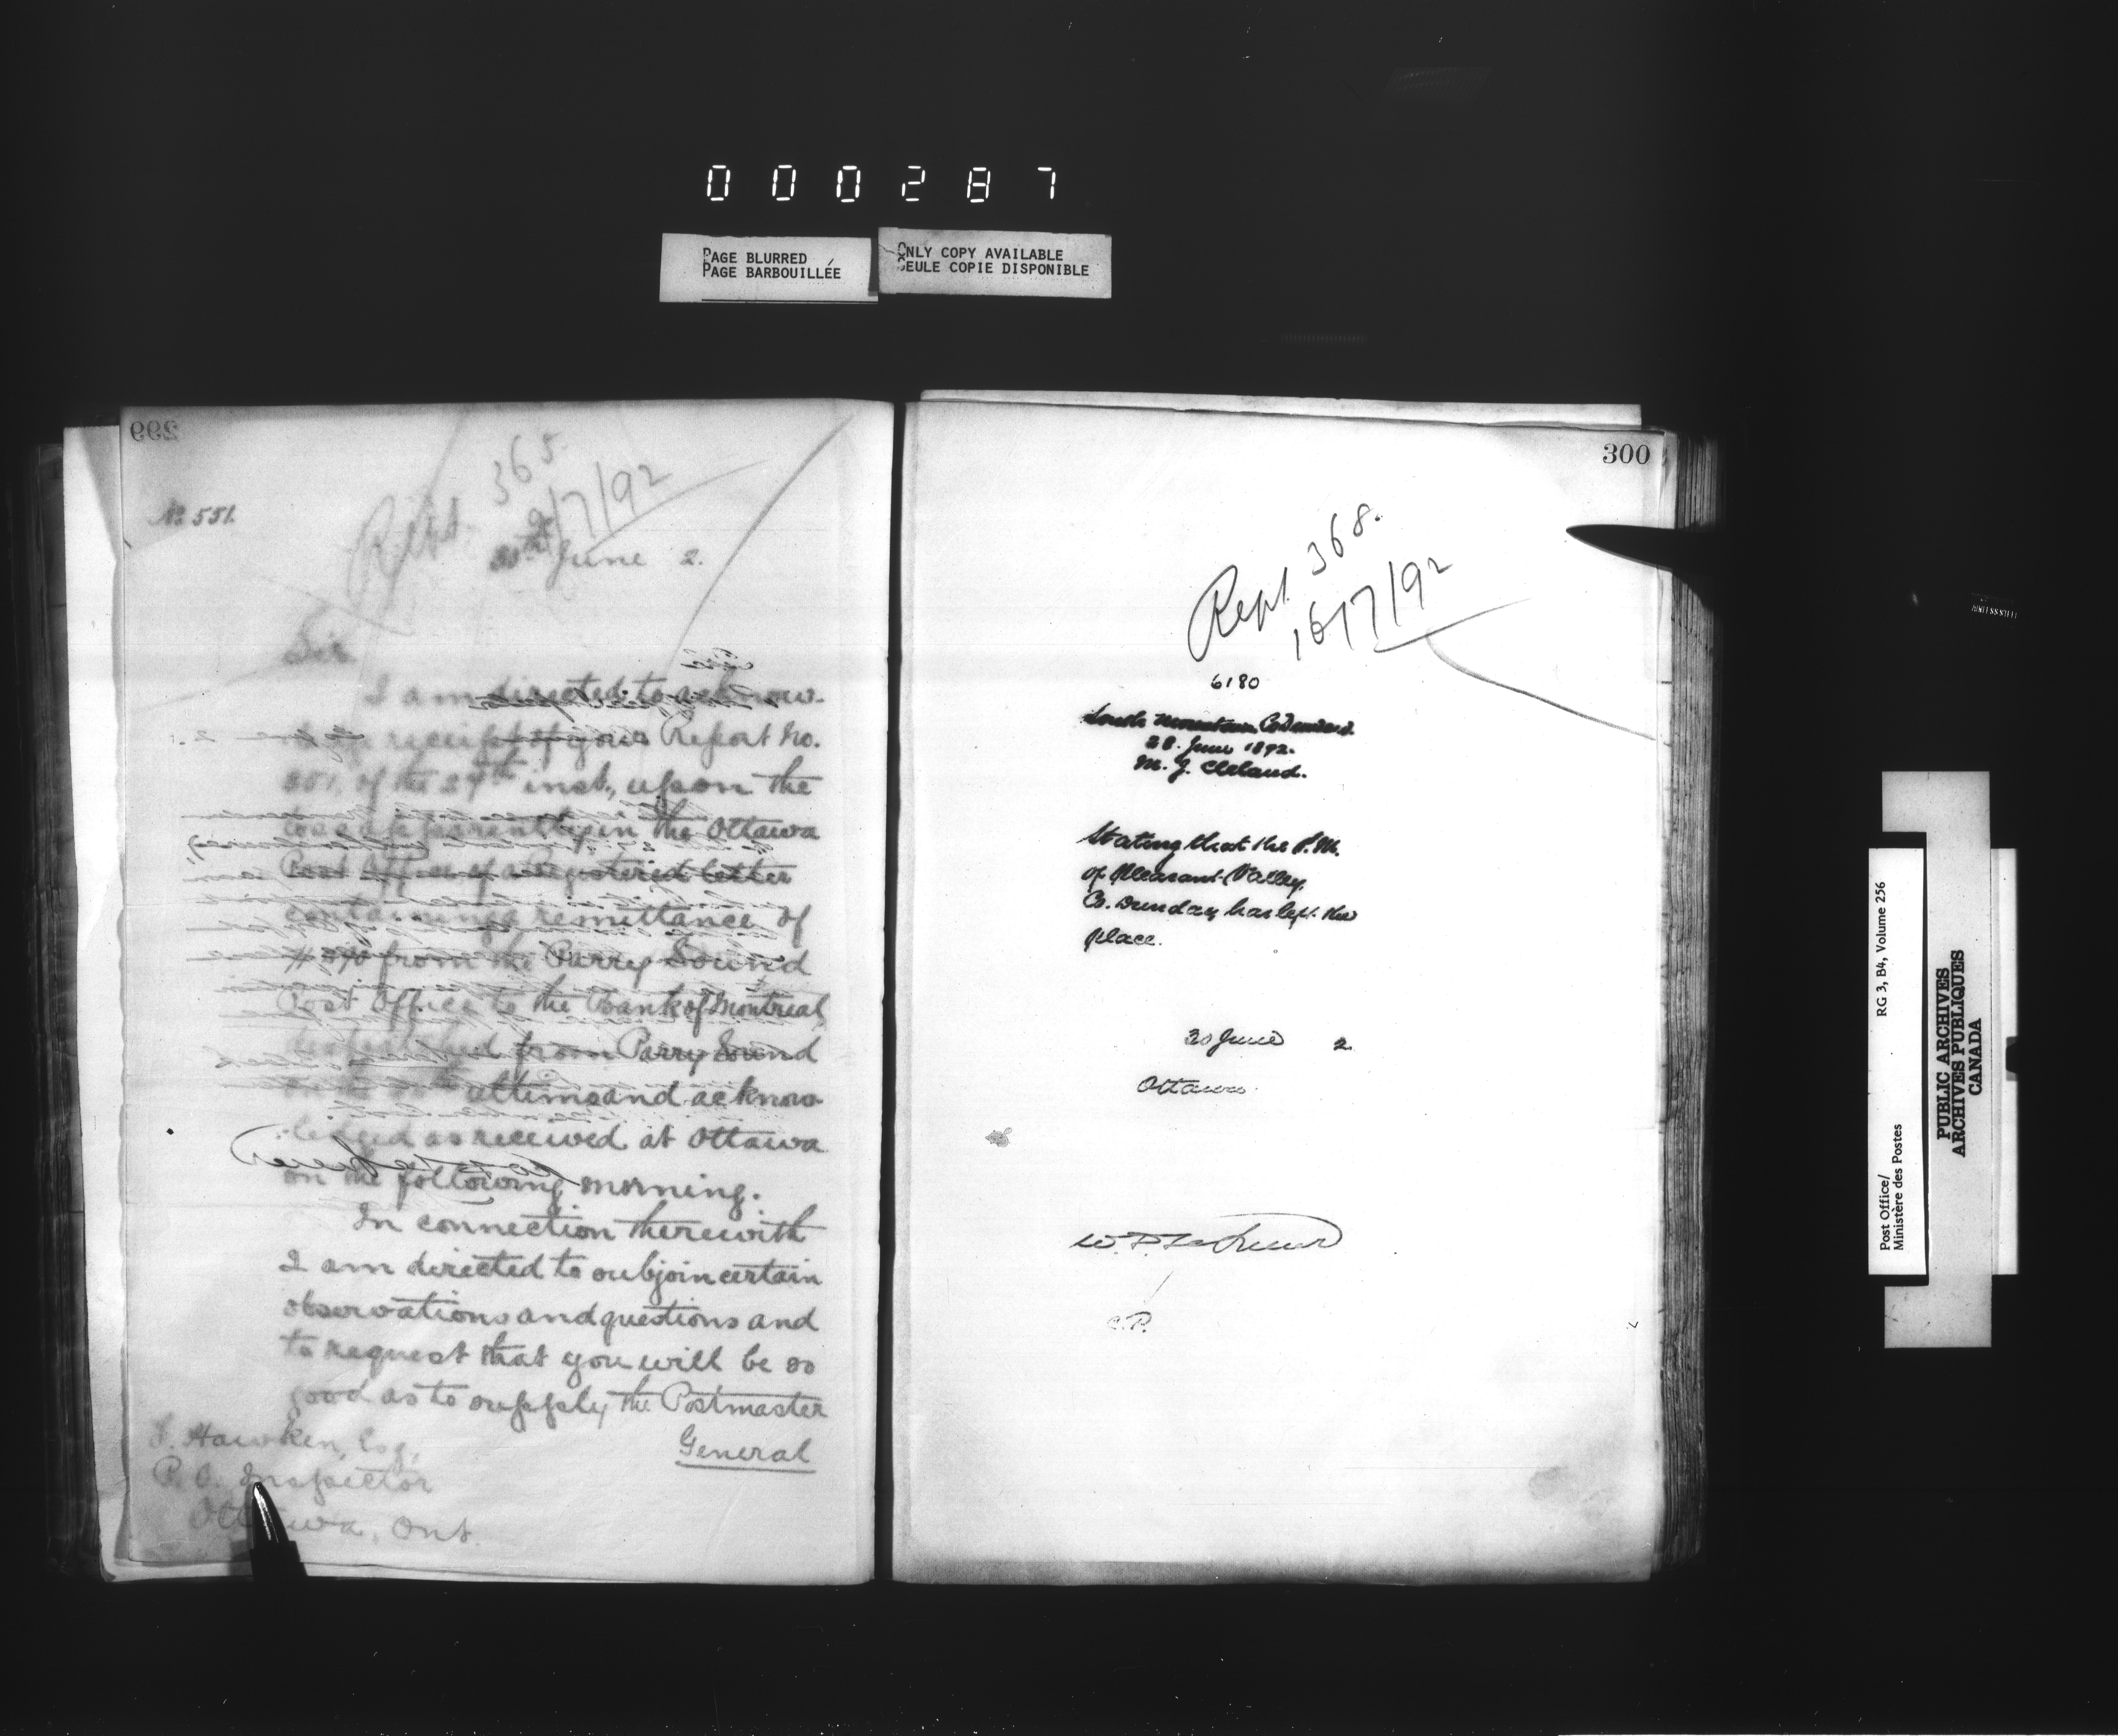 000287
PAGE BLURRED
PAGE BARBOUILLÉE
ONLY COPY AVAILABLE
SEULE COPIE DISPONIBLE
299
No. 551.
Rept. 365.
9/7/92
30th June 2.
Sir
I am directed to acknow-
receipt of your Report No.
351, of the 29th inst., upon the
loss apparently in the Ottawa
Post Office of a Registered letter
containing a remittance of
from the Parry Sound
Post Office to the Bank of Montreal,
despatched from Parry Sound
on the ultimo and acknow-
-ledged as received at Ottawa
on the following morning.
In connection therewith
I am directed to subjoin certain
observations and questions and
to request that you will be so
good as to supply the Postmaster
General
Hawken, Esq,
P. O. Inspector
Ottawa, Ont.
300
Rept. 368.
16/7/92
6180
South Mountain, Co. Dundas.
28. June 1892.
M. J. Cleland.
Stating that the P.M.
of Pleasant Valley,
Co. Dundas has left the
place.
30 June 2
Ottawa
W. D. LeSueur
C.P.
RG 3, B4, Volume 256
Post Office/
Ministère des Postes
PUBLIC ARCHIVES
ARCHIVES PUBLIQUES
CANADA